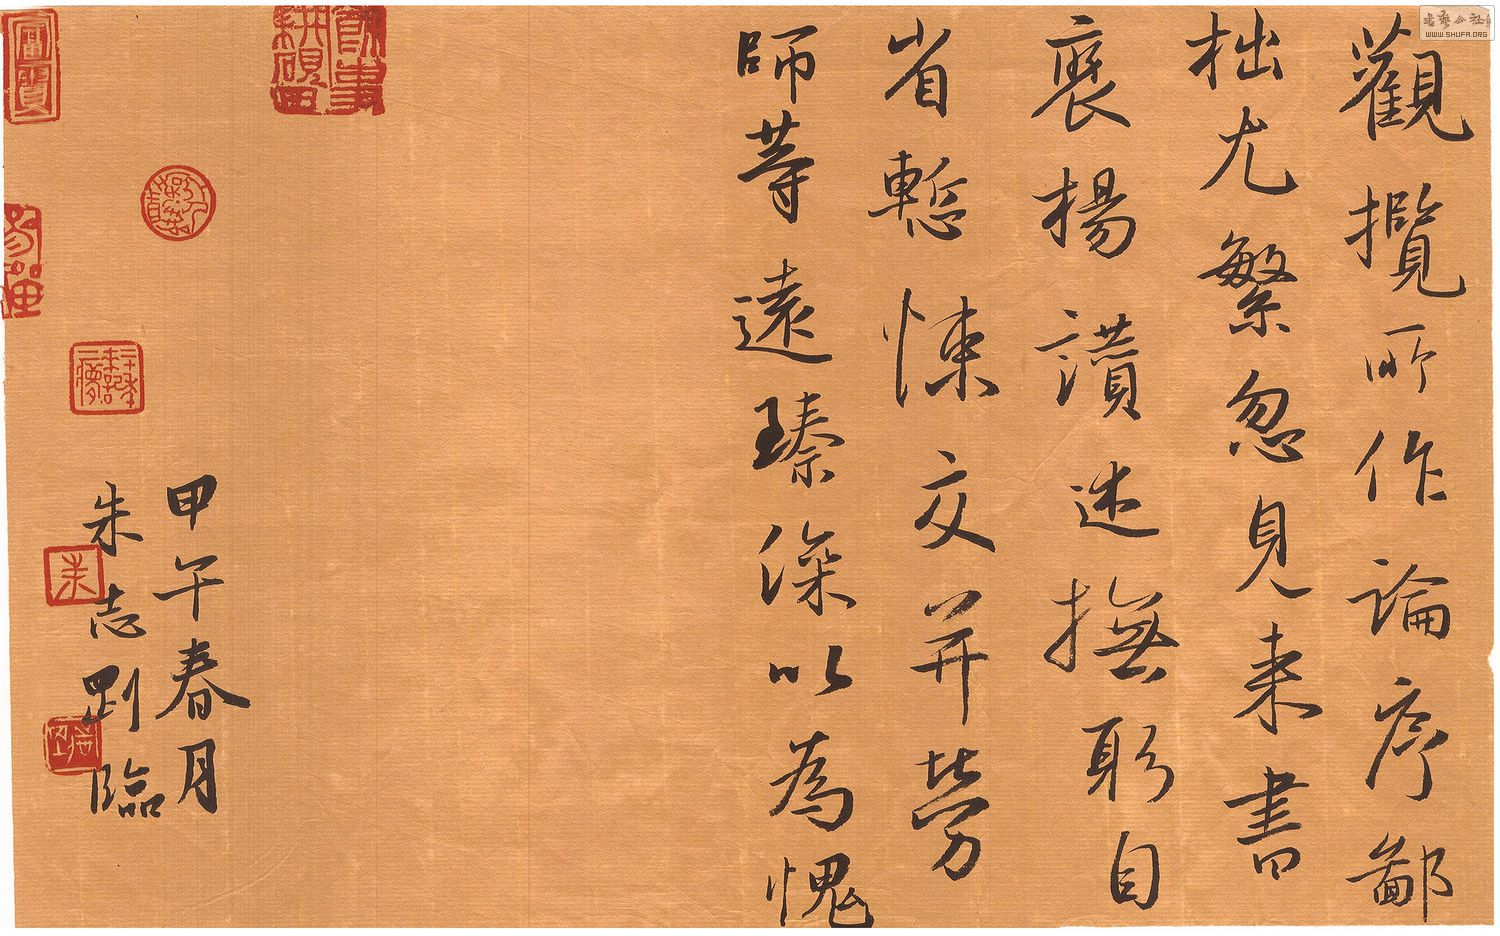 觀攬所作論序鄙
拙尤繁忽見来書
褒揚讚述撫躬自
省慙悚交并勞
師等遠臻深以為愧
甲午春月
朱志剛臨
書藝公社
WWW.SHUFA.ORG